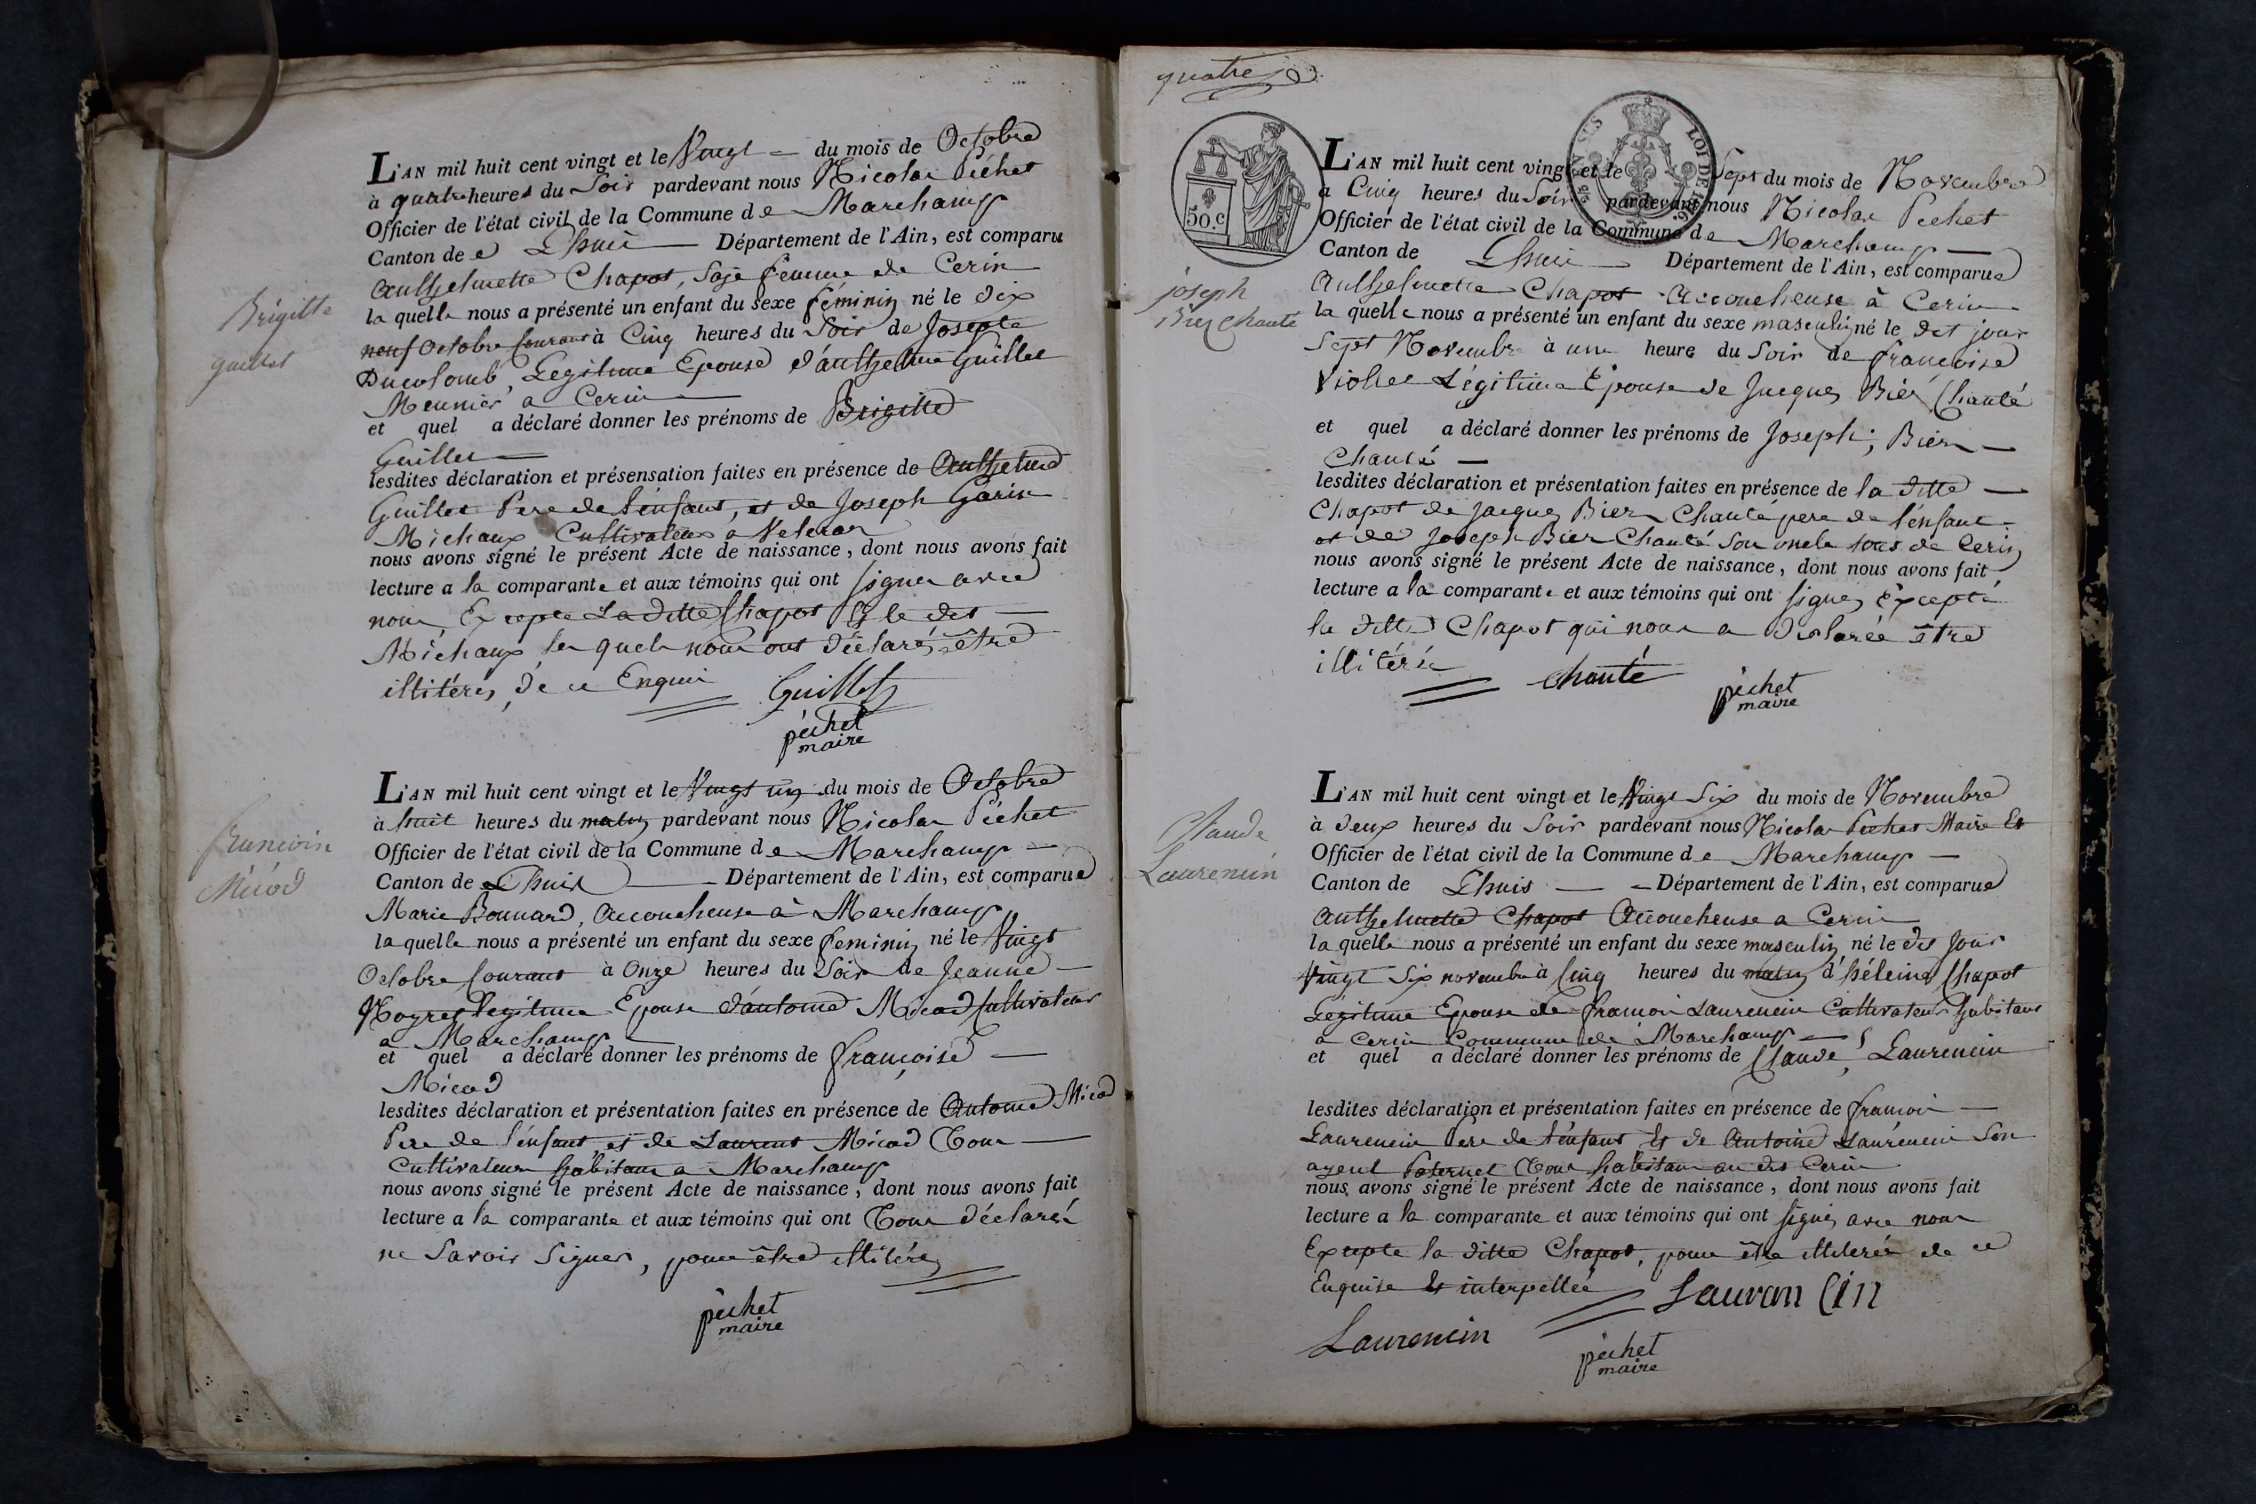 L'AN mil huit cent vingt et le Vingt du mois de Octobre
à quatre heures du Soir pardevant nous Nicolas Péchet
Officier de l'état civil de la Commune de Marchamp
Canton de Lhuis Département de l'Ain, est comparu
Anthelmette Chapot, Sage femme de Cerin
la quelle nous a présenté un enfant du sexe féminin né le dix
neuf Octobre Courant à Cinq heures du Soir de Josepte
Ducolomb, Legitime Epouse d'anthelme Guillet
Meunier a Cerin
et quel a déclaré donner les prénoms de Brigitte
Guillet
lesdites déclaration et présensation faites en présence de Anthelme
Guillet Pere de l'énfant, et de Joseph Garin
Michaux Cultivateur a
nous avons signé le présent Acte de naissance, dont nous avons fait
lecture a la comparante et aux témoins qui ont signer avec
nous Excepte La ditte Chapot Et le dit
Michaux les quels nous ont déclarés être
illitérés de ce Enquis
Guillet
péchet
maire
Brigitte
guillet
L'AN mil huit cent vingt et le Vingt un du mois de Octobre
à huit heures du matin pardevant nous Nicolas Péchet
Officier de l'état civil de la Commune de Marchamp
Canton de Lhuis Département de l'Ain, est comparue
Marie Bonnard, Accoucheuse à Marchamp
la quelle nous a présenté un enfant du sexe feminin né le Vingt
Octobre Courant à Onze heures du Soir de Jeanne
Noyret legitime Epouse d'antoine Micod Cultivateur
a Marchamp
et quel a déclaré donner les prénoms de françoise
Micod
lesdites déclaration et présentation faites en présence de Antoine Micod
Pere de l'énfant et de Laurent Micod Tous
Cultivateurs habitans a Marchamp
nous avons signé le présent Acte de naissance, dont nous avons fait
lecture a la comparante et aux témoins qui ont Tous déclaré
ne Savoir Signer, pour être illitérés
péchet
maire
francoise
Micod
quatre
50.C
LOI DE 1816.
L'AN mil huit cent vingt et le Sept du mois de Novembre
a Cinq heures du Soir pardevant nous Nicolas Péchet
Officier de l'état civil de la Commune de Marchamp
Canton de Lhuis Département de l'Ain, est comparue
Anthelmette Chapot Accoucheuse à Cerin
la quelle nous a présenté un enfant du sexe masculin né le dit jour
Sept Novembre à une heure du Soir de françoise
Viollet Légitime Épouse de Jacques Bier Chanté
et quel a déclaré donner les prénoms de Joseph, Bier
Chanté
lesdites déclaration et présentation faites en présence de la ditte
Chapot de jacques Bier Chanté pere de l'énfant
et de Joseph Bier Chanté Son oncle tous de Cerin
nous avons signé le présent Acte de naissance, dont nous avons fait
lecture a la comparante et aux témoins qui ont signés éxcepté
la ditte Chapot qui nous a déclarée être
illitérée
chanté
péchet
maire
joseph
Bier Chanté
L'AN mil huit cent vingt et le Vingt Six du mois de Novembre
à deux heures du Soir pardevant nous Nicolas Péchet Maire Et
Officier de l'état civil de la Commune de Marchamp
Canton de Lhuis Département de l'Ain, est comparue
Anthelmette Chapot Accoucheuse a Cerin
la quelle nous a présenté un enfant du sexe masculin né le dit Jour
Vingt Six novembre à Cinq heures du matin d'héleine Chapot
Légitime Epouse de françois Laurencin Cultivateur habitant
a Cerin Commune de Marchamp
et quel a déclaré donner les prénoms de Claude, Laurencin
lesdites déclaration et présentation faites en présence de françois
Laurencin Pere de l'énfant Et de Antoine Laurencin Son
ayeul Paternel Tous habitans au dit Cerin
nous avons signé le présent Acte de naissance, dont nous avons fait
lecture a la comparante et aux témoins qui ont signés avec nous
Excepte la ditte Chapot, pour être illiterée de ce
Enquise Et interpellée
Lauran Cin
Laurencin
péchet
maire
Claude
Laurencin